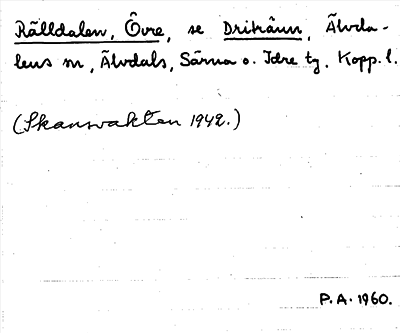 Rälldalen, Övre, se Drikåun, Älvda-
lens sn, Älvdals, Särna o. Idre tg, Kopp. l.
(Skansvakten 1942.)
P.A. 1960.